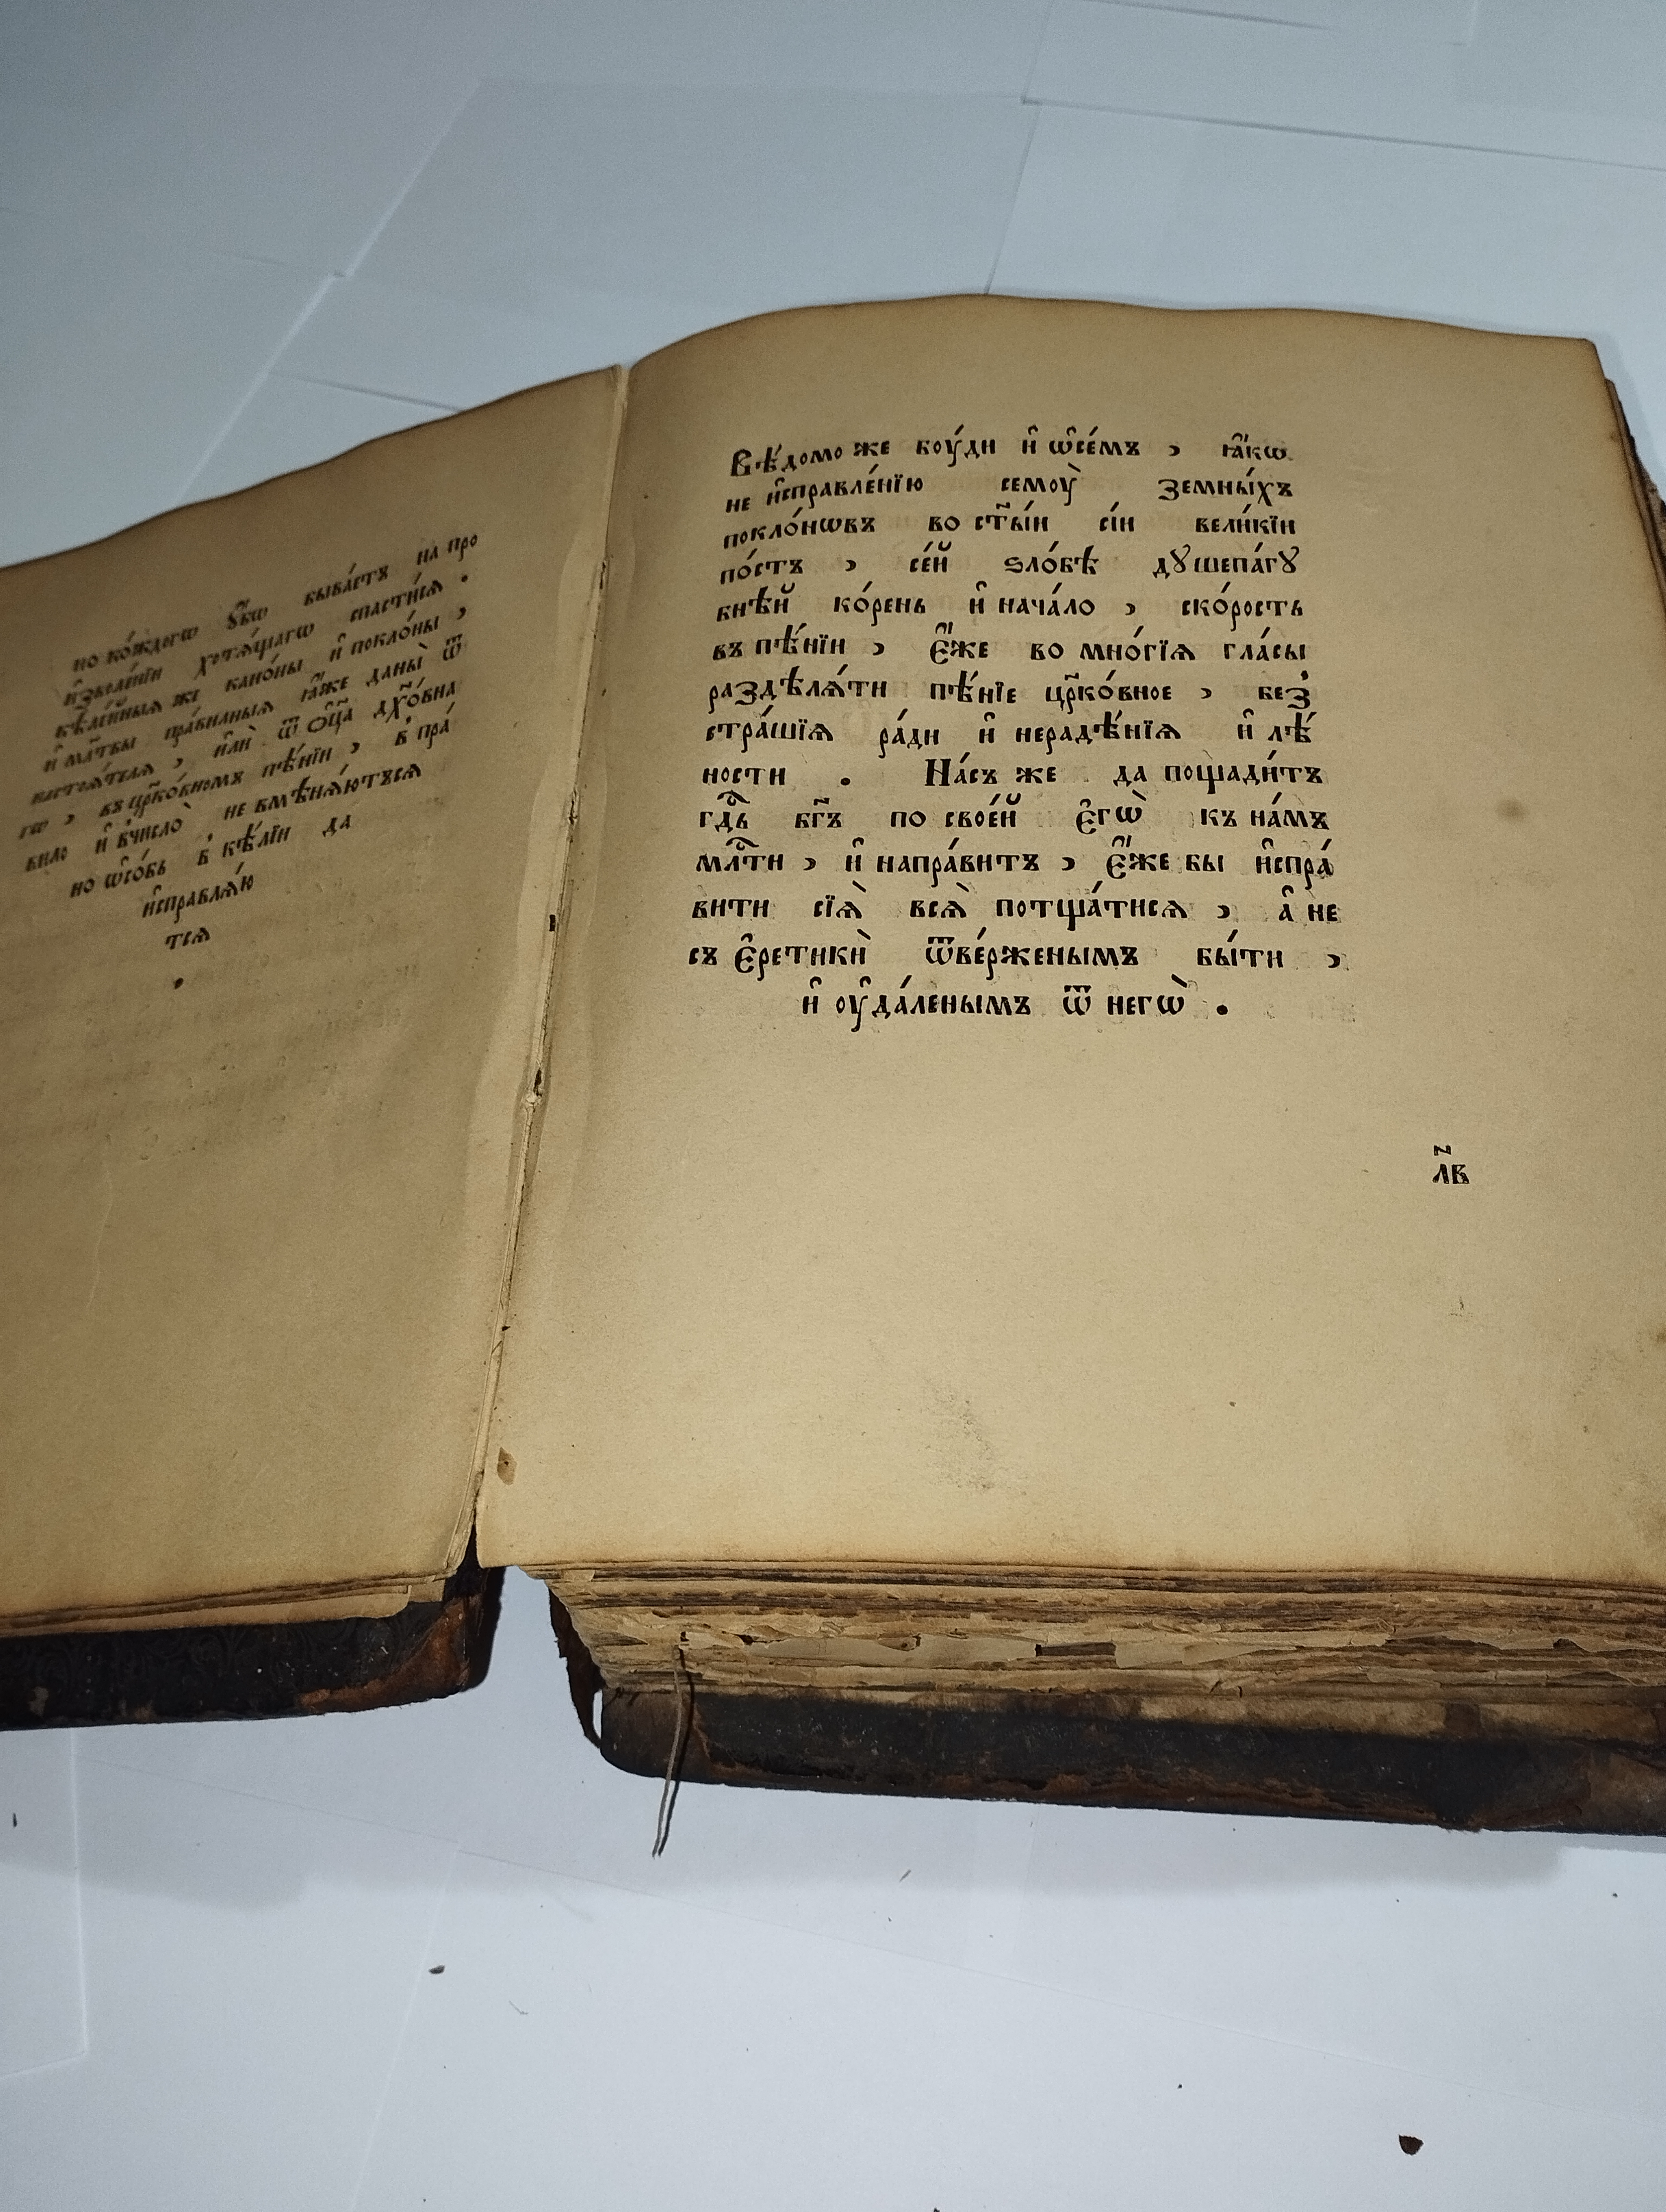 но ко́ждогѡ ᲂу҆́бѡ быва́етъ на про
и҆зволе́нїи хотѧ́щагѡ спасти́сѧ .
кѣле́йныѧ же кано́ны и҆ покло́ны ,
и҆ мл҃твы пра́вилныѧ ꙗ҆́же даны̀ ѿ
настоѧ́телѧ , и҆лѝ ѿ ѻ҆ц҃а дх҃о́вна
гѡ , въ цр҃ко́вномъ пѣ́нїи , в̾ пра́
вило и҆ в̾число̀ не вмѣнѧ́ютъсѧ
но ѡ҆со́бь в̾ кѣ́лїи да
и҆справлѧ́ю
тсѧ
.
Вѣ́домо же бꙋ́ди и҆ ѡ҆се́мъ , ꙗ҆́кѡ
не и҆справле́нїю семꙋ̀ земны́хъ
покло́нѡвъ во ст҃ы́и сі́и вели́кїи
по́стъ , се́й ѕло́бѣ дꙋшепа́гꙋ
бнѣй ко́рень и҆ нача́ло , ско́рость
въ пѣ́нїи , є҆́же во мно́гїѧ гла́сы
раздѣлѧ́ти пѣ́нїе цр҃ко́вное , без̾
стра́шїѧ ра́ди и҆ нерадѣ́нїѧ и҆ лѣ́
ности . На́съ же да пощади́тъ
гдⷭ҇ь бг҃ъ по свое́й є҆гѡ̀ къ на́мъ
млⷭ҇ти , и҆ напра́витъ , є҆́же бы и҆спра́
вити сїѧ̀ всѧ̀ потща́тисѧ , а҆ не
съ є҆ретикѝ ѿве́рженымъ бы́ти ,
и҆ ᲂу҆да́ленымъ ѿ негѡ̀ .
л҃в